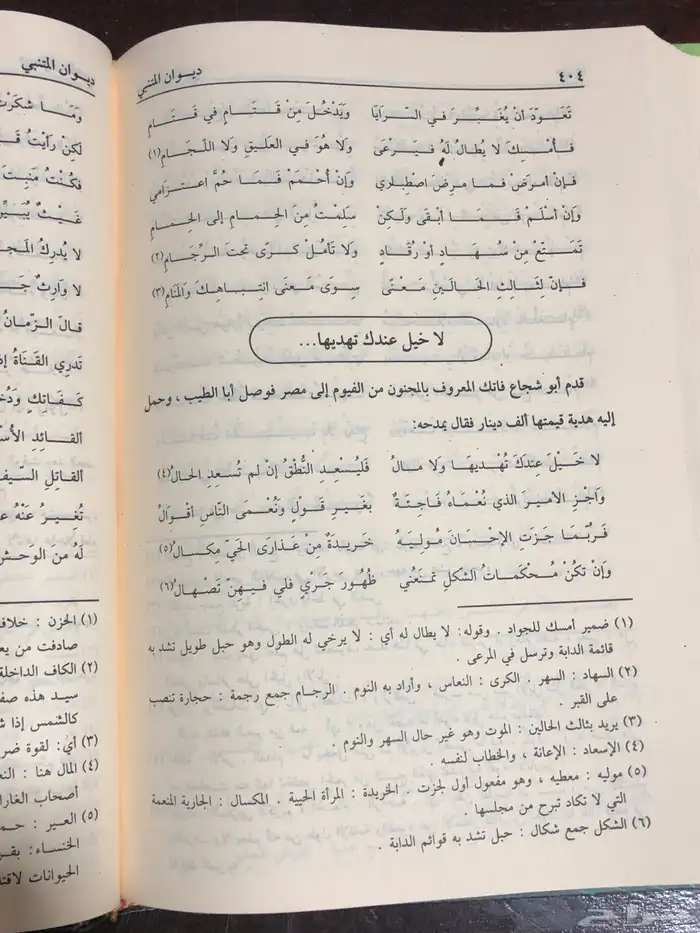 ٤٠٤ ديوان المتنبي
تَعَوّدَ أنْ يُغَبِّرَ في السّرَايَا وَيَدْخُلَ مِنْ قَتَامٍ في قَتَامِ
فَأُمْسِكَ لا يُطَالُ لَهُ فَيَرْعَى وَلا هُوَ في العَلِيقِ وَلا اللّجَامِ(١)
فَإنْ أمرَضْ فما مرِضَ اصْطِباري وَإنْ أُحْمَمْ فَمَا حُمَّ اعتزَامي
وَإنْ أسْلَمْ فَمَا أبْقَى وَلَكِنْ سَلِمْتُ مِنَ الحِمامِ إلى الحِمامِ
تَمَتّعْ مِنْ سُهَادٍ أوْ رُقَادٍ وَلا تَأمُلْ كَرًى تحْتَ الرِّجَامِ(٢)
فَإنّ لِثَالِثِ الحَالَينِ مَعْنًى سِوَى مَعنَى انتِبَاهِكَ وَالمَنَامِ(٣)
لا خيل عندك تهديها...
قدم أبو شجاع فاتك المعروف بالمجنون من الفيوم إلى مصر فوصل أبا الطيب ، وحمل
إليه هدية قيمتها ألف دينار فقال يمدحه:
لا خَيْلَ عِندَكَ تُهْديهَا وَلا مالُ فَليُسْعِدِ النُّطْقُ إنْ لم تُسعِدِ الحالُ(٤)
وَاجْزِ الأميرَ الذي نُعْمَاهُ فَاجِئَةٌ بغَيرِ قَوْلٍ وَنُعْمَى النّاسِ أقْوَالُ
فَرُبّمَا جَزَتِ الإحْسَانَ مُولِيَهُ خَرِيدَةٌ مِنْ عَذارَى الحَيّ مِكسالُ(٥)
وَإنْ تكُنْ مُحْكَمَاتُ الشُّكلِ تمنَعُني ظُهُورَ جَرْيٍ فَلي فيهِنّ تَصْهَالُ(٦)
(١) ضمير أمسك للجواد . وقوله: لا يطال له أي : لا يرخي له الطول وهو حبل طويل تشد به
قائمة الدابة وترسل في المرعى .
(٢) السهاد : السهر . الكرى : النعاس ، وأراد به النوم . الرجام جمع رجمة : حجارة تنصب
على القبر .
(٣) يريد بثالث الحالين : الموت وهو غير حال السهر والنوم .
(٤) الإسعاد : الإعانة ، والخطاب لنفسه .
(٥) موليه : معطيه ، وهو مفعول أول لجزت . الخريدة : المرأة الحيية . المكسال : الجارية المنعمة
التي لا تكاد تبرح من مجلسها .
(٦) الشكل جمع شكال : حبل تشد به قوائم الدابة .
ديوان المتنبي
وَمَا شكَرْتُ
لَكِنْ رَأيْتُ
فكُنْتُ مَنبِتَ
غَيْثٌ يُبَيِّنُ
لا يُدرِكُ المَجدَ
لا وَارِثٌ
قالَ الزّمانُ
تَدرِي القَنَاةُ
كَفَاتِكٍ
ألقَائِدِ
ألقاتِلِ السّيفَ
تُغِيرُ عَنْهُ
لَهُ من الوَحشِ
(١) الحزن : خلاف
صادفت من
(٢) الكاف الداخلة
سيد هذه
كالشمس إذا
(٣) أي: لقوة
(٤) المال هنا :
أصحاب
(٥) العير :
الخنساء:
الحيوانات